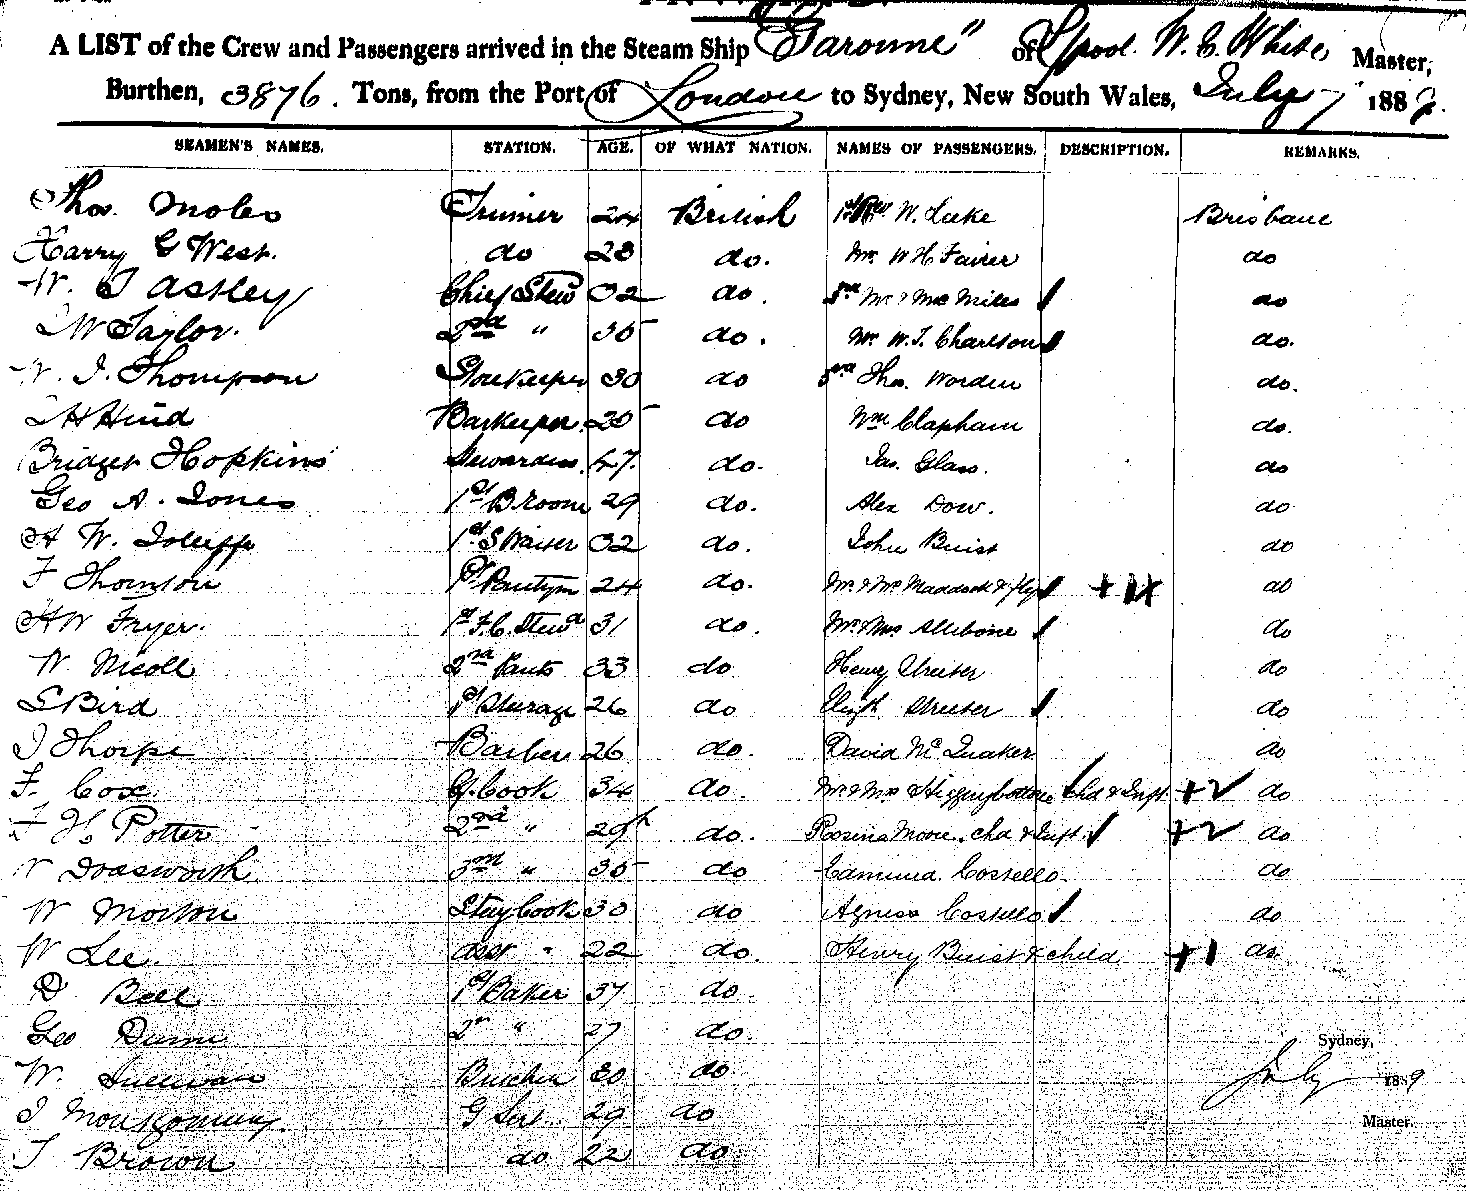 A LIST of the Crew and Passengers arrived in the Steam Ship "Garonne" of Lpool. W. C. White Master,
Burthen, 3876. Tons, from the Port of London to Sydney, New South Wales, July 7 188
SEAMEN'S NAMES. STATION. AGE. OF WHAT NATION. NAMES OF PASSENGERS. DESCRIPTION. REMARKS.
Thos. Moles Trimer 24 British W. Luke Brisbane
Harry G West. do 28 do. Mr W H Fairer do
W. T Astley Chief Stewd 32 do. Mr & Mrs Miles do
W Taylor. 2nd " 35 do. Mr W. T. Charlson do.
W. J. Thompson Storekeeper 30 do 3rd Thos. Worden do.
H Hind Barkeeper. 25 do Wm Clapham do.
Bridget Hopkins Stewardess. 47. do. Jas. Glass. do
Geo A. Jones 1st B. room 29 do. Alex Dow. do
H W. 1st S Waiter 32 do. John Buist do
F Thomson 1st Pantym 24 do. Mr & Mrs Maddock & fly do
H W Fryer. 1st F. C. Stewd 31 do. Mr & Mrs Allebone do
W. Nicoll 2nd Pants 33 do Henry Streeter do
S Bird 1st Sterage 26 do Streeter do
J Thorpe Barber 26 do. David Mc Quaker do
F. Cox. Cook 34 do. Mr & Mrs Higginbottom Chd & Inft. +2 do
F H. Potter 2nd " 29 do. Rosina Moore, Chd & Inft. +2 do
W Dodsworth 3rd " 35 do Edmund Costello. do
W Morton Cook 30 do Agness Costello do
W Lee. asst " 22 do. Henry Buist & child +1 do
D Bell 1st Baker 37 do.
Geo Dunn 2nd " 27 do.
Sydney,
W. Sullivan Butcher 30 do July 1889
J Montgomery. G Ser. 29 do
Master.
J Brown do 22 do.